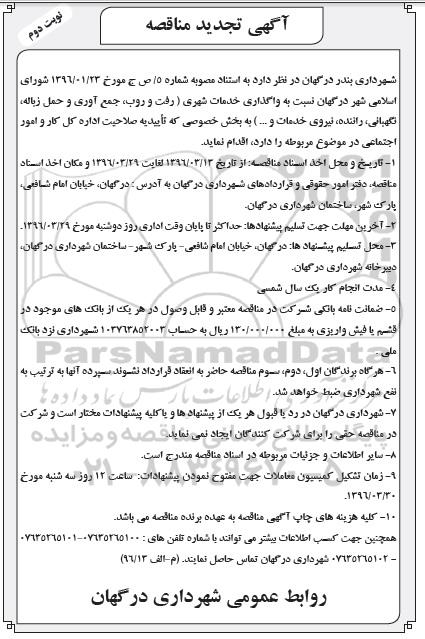 آگهی تجدید مناقصه
نوبت دوم
شهرداری بندر درگهان در نظر دارد به استناد مصوبه شماره ۵/ ص ج مورخ ۱۳۹۶/۰۱/۲۳ شورای
اسلامی شهر درگهان نسبت به واگذاری خدمات شهری ( رفت و روب، جمع آوری و حمل زباله،
نگهبانی، راننده، نیروی خدمات و ... ) به بخش خصوصی که تأییدیه صلاحیت اداره کل کار و امور
اجتماعی در موضوع مربوطه را دارد، اقدام نماید.
۱- تاریخ و محل اخذ اسناد مناقصه: از تاریخ ۱۳۹۶/۰۳/۱۳ لغایت ۱۳۹۶/۰۳/۲۹ و مکان اخذ اسناد
مناقصه، دفتر امور حقوقی و قراردادهای شهرداری درگهان به آدرس : درگهان، خیابان امام شافعی،
پارک شهر، ساختمان شهرداری درگهان.
۲- آخرین مهلت جهت تسلیم پیشنهادها: حداکثر تا پایان وقت اداری روز دوشنبه مورخ ۱۳۹۶/۰۳/۲۹.
۳- محل تسلیم پیشنهاد ها: درگهان، خیابان امام شافعی- پارک شهر- ساختمان شهرداری درگهان،
دبیرخانه شهرداری درگهان.
۴- مدت انجام کار یک سال شمسی
۵- ضمانت نامه بانکی شرکت در مناقصه معتبر و قابل وصول در هر یک از بانک های موجود در
قشم یا فیش واریزی به مبلغ ۱۳۰/۰۰۰/۰۰۰ ریال به حساب ۱۰۳۷۶۳۸۵۲۰۰۳ شهرداری نزد بانک
ملی .
۶- هرگاه برندگان اول، دوم، سوم مناقصه حاضر به انعقاد قرارداد نشوند سپرده آنها به ترتیب به
نفع شهرداری ضبط خواهد شد.
۷- شهرداری درگهان در رد یا قبول هر یک از پیشنهاد ها و یا کلیه پیشنهادات مختار است و شرکت
در مناقصه حقی را برای شرکت کنندگان ایجاد نمی نماید.
۸- سایر اطلاعات و جزئیات مربوطه در اسناد مناقصه مندرج است.
۹- زمان تشکیل کمیسیون معاملات جهت مفتوح نمودن پیشنهادات: ساعت ۱۲ روز سه شنبه مورخ
۱۳۹۶/۰۳/۳۰.
۱۰- کلیه هزینه های چاپ آگهی مناقصه به عهده برنده مناقصه می باشد.
همچنین جهت کسب اطلاعات بیشتر می توانند با شماره تلفن های : ۰۷۶۳۵۲۶۵۱۰۰-۰۷۶۳۵۲۶۵۱۰۱
- ۰۷۶۳۵۲۶۵۱۰۲ شهرداری درگهان تماس حاصل نمایند. (م-الف ۹۶/۱۳)
روابط عمومی شهرداری درگهان
ParsNamadData